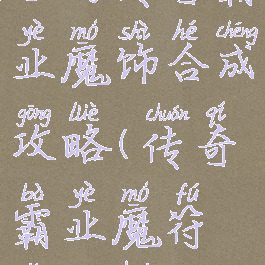 yè mó shì hé chéng
业魔饰合成
gōng lüè chuán qí
攻略(传奇
bà yè mó fú
霸业魔符